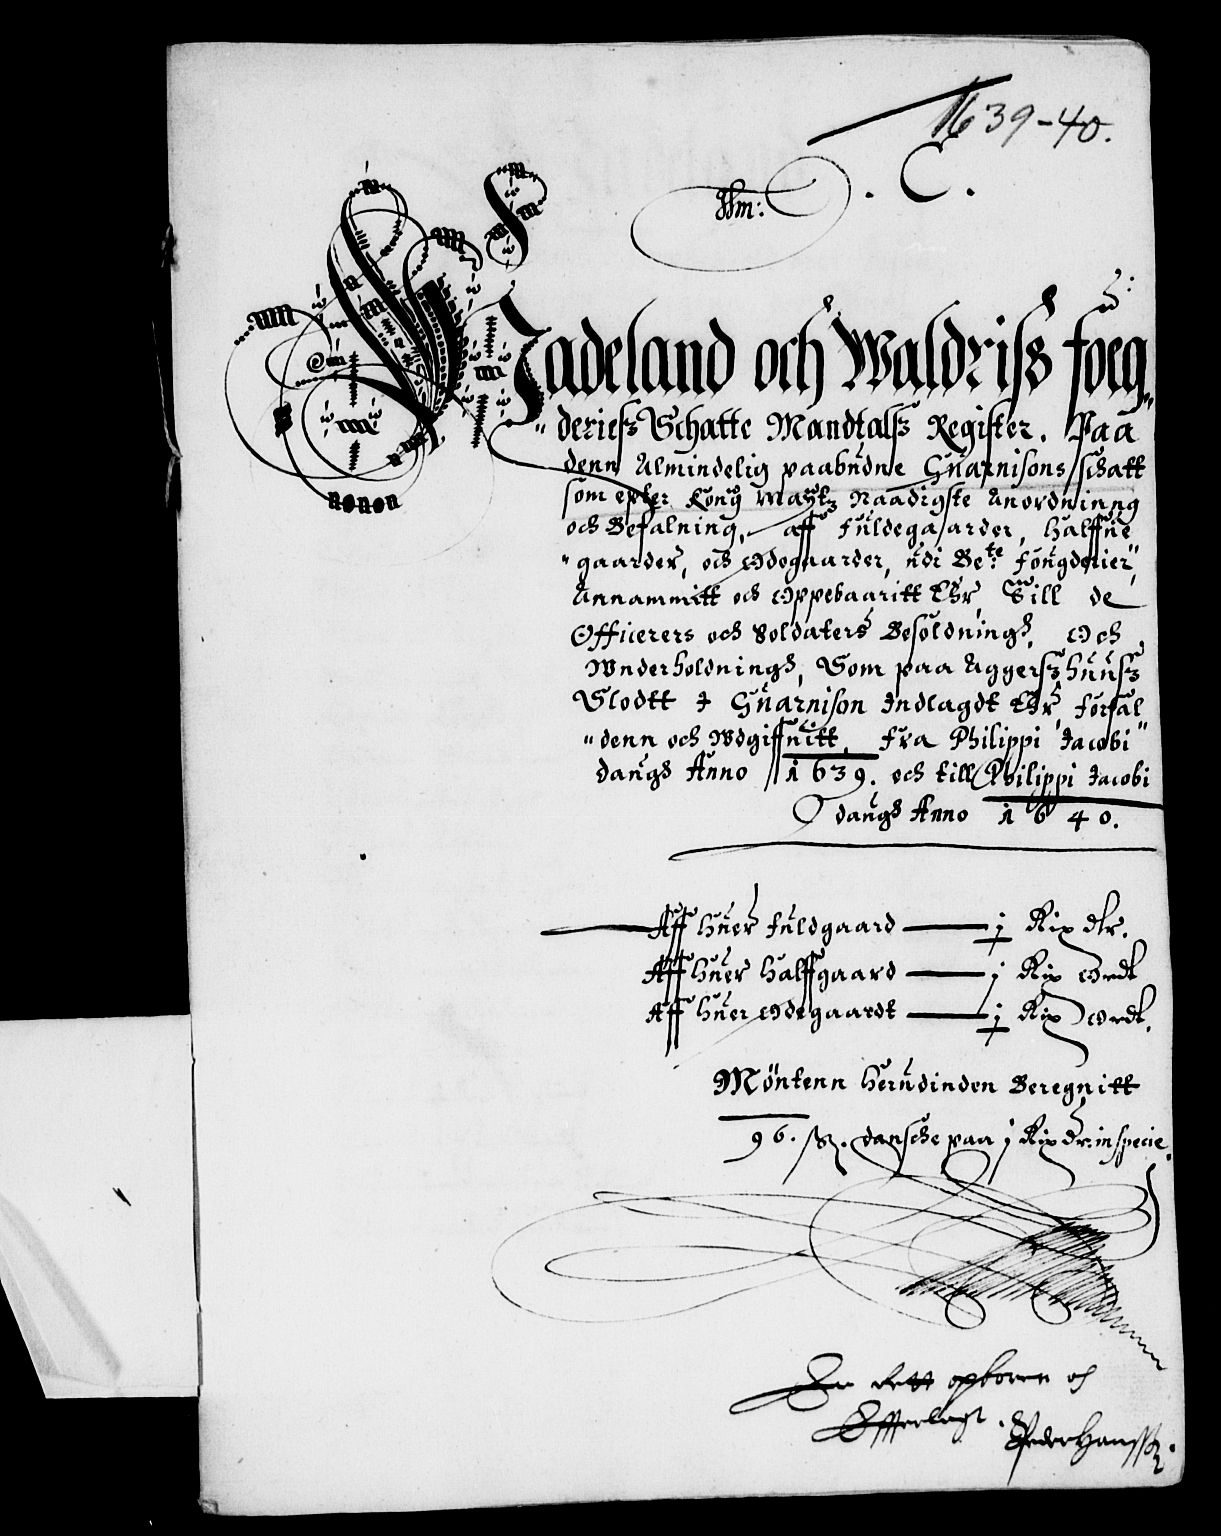 1639-40.
. C.
Hadeland och Waldriss foug„
„deriers Schatte Mandtals Register. Paa
denn Almindelig paabudne Guarnisons schatt
som epter Kong Maytz Naadigste Anordninng
och Befalning, aff fuldegaarder, halffue
„gaarder, och Ødegaarder, udi Bete: fougderier,
Annammitt och Oppebaaritt Ehr, Till de
Officerers och Soldaters Besoldningh, Och
Wnderholdningh, Som paa Aggerszhuusz
Slodtt J Guarnison Indlagdt Ehr, forfal
„denn och Wdgiffuitt, fra Philippi Jacobi
daugh Anno 1639. och till Philippi Jacobi
daugh Anno 1640.
Aff huer fuldgaard — j Rix dlr.
Aff huer halffgaard — j Rix Ordt
Aff huer Ødegaardt — j Rix Ordt.
Møntenn herudinden Beregnitt
96. sz. dansche paa j Rix dr. in specie.
En rett opboren och
Efterlagt. Peder Hanssz